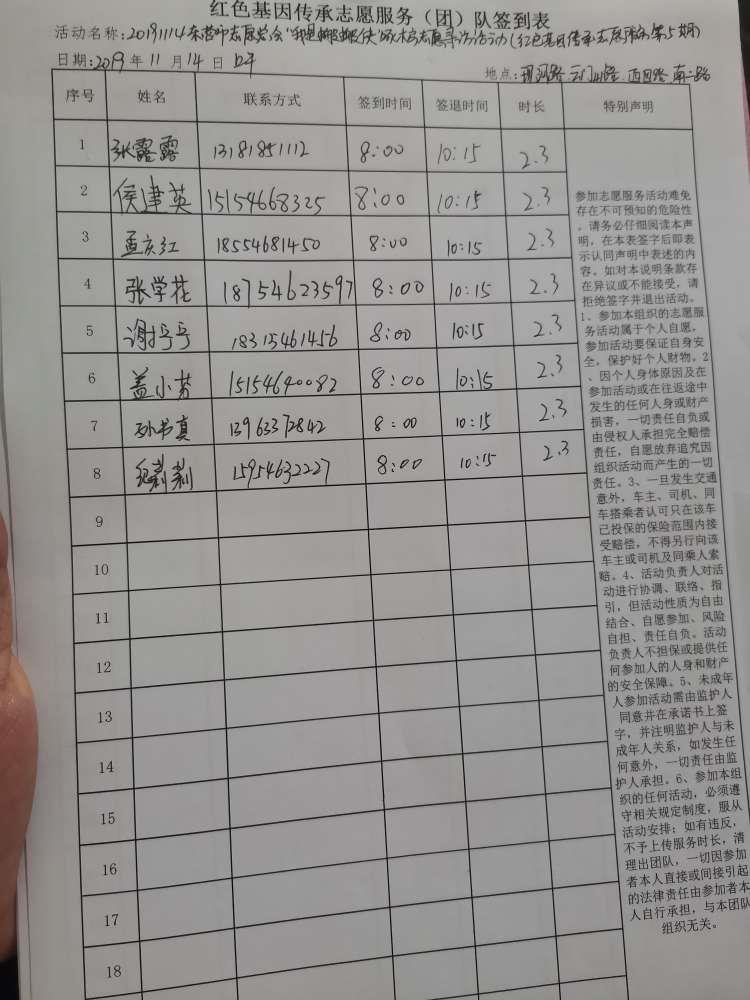 红色基因传承志愿服务（团）队签到表
活动名称：20191114东营市志愿总会“我是 （红色基因传承志愿服务第5期）
日期：2019年11月14日
地点：
序号 姓名 联系方式 签到时间 签退时间 时长 特别声明
1 张露露 13181851112 8:00 10:15 2.3
2 侯建英 15154668325 8:00 10:15 2.3
3 孟庆红 18554681450 8:00 10:15 2.3
4 张学花 18754623597 8:00 10:15 2.3
5 谢 18315461456 8:00 10:15 2.3
6 盖小芬 15154640082 8:00 10:15 2.3
7 孙书真 13963372842 8:00 10:15 2.3
8 纪莉莉 15954632227 8:00 10:15 2.3
9
10
11
12
13
14
15
16
17
18
参加志愿服务活动难免
存在不可预知的危险性
，请务必仔细阅读本声
明，在本表签字后即表
示认同声明中表述的内
容。如对本说明条款存
在异议或不能接受，请
拒绝签字并退出活动。
1、参加本组织的志愿服
务活动属于个人自愿，
参加活动要保证自身安
全，保护好个人财物。2
、因个人身体原因及在
参加活动或在往返途中
发生的任何人身或财产
损害，一切责任自负或
由侵权人承担完全赔偿
责任，自愿放弃追究因
组织活动而产生的一切
责任。3、一旦发生交通
意外，车主、司机、同
车搭乘者认可只在该车
已投保的保险范围内接
受赔偿，不得另行向该
车主或司机及同乘人索
赔。4、活动负责人对活
动进行协调、联络、指
引，但活动性质为自由
结合、自愿参加、风险
自担、责任自负。活动
负责人不担保或提供任
何参加人的人身和财产
的安全保障。5、未成年
人参加活动需由监护人
同意并在承诺书上签
字，并注明监护人与未
成年人关系，如发生任
何意外，一切责任由监
护人承担。6、参加本组
织的任何活动，必须遵
守相关规定制度，服从
活动安排；如有违反，
不予上传服务时长，清
理出团队，一切因参加
者本人直接或间接引起
的法律责任由参加者本
人自行承担，与本团队
组织无关。